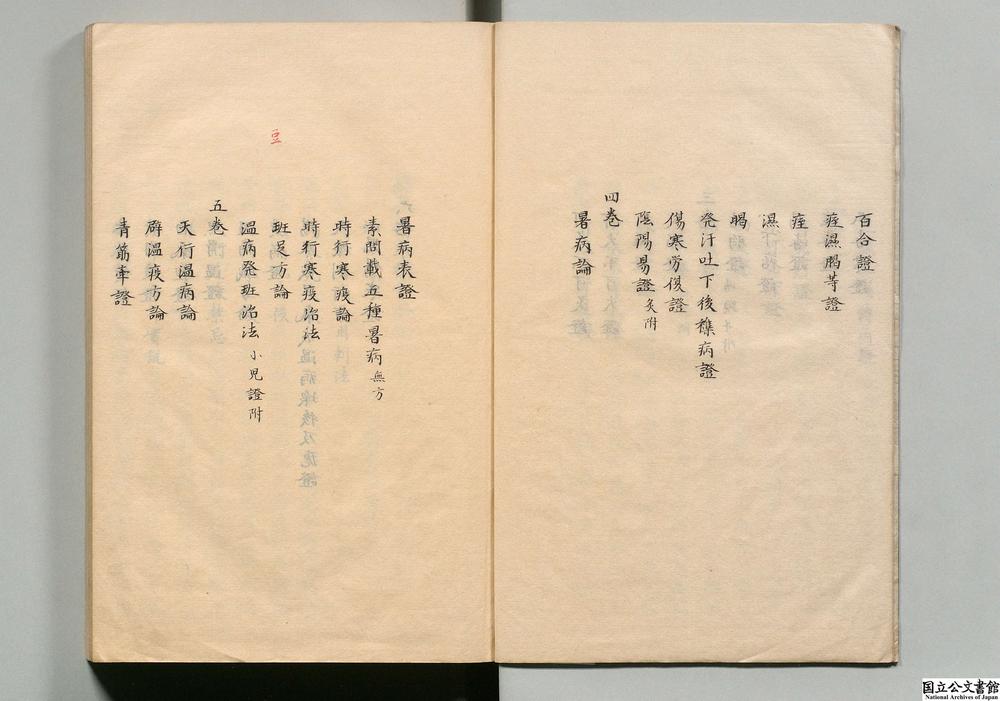 百合證
痓濕暍等證
痓
濕
暍
発汗吐下後雜病證
傷寒労復證
陰陽易證 灸附
四巻
暑病論
暑病表證
素問載五種暑病 無方
時行寒疫論
時行寒疫治法
班疹方論
温病発班治法 小児證附
五巻
天行温病論
辟温疫方論
青筋牽證
豆
国立公文書館
National Archives of Japan